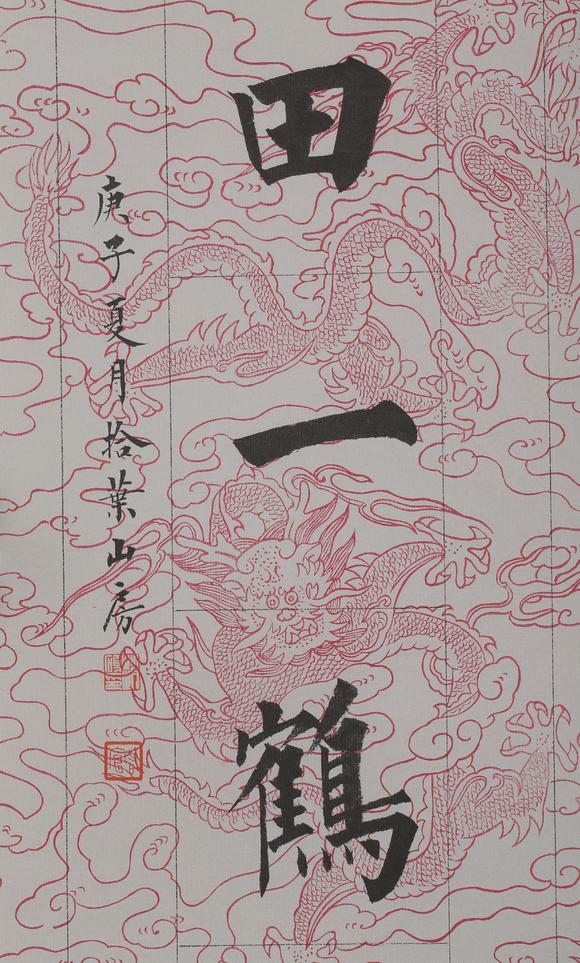 田一鶴
庚子夏月拾葉山房